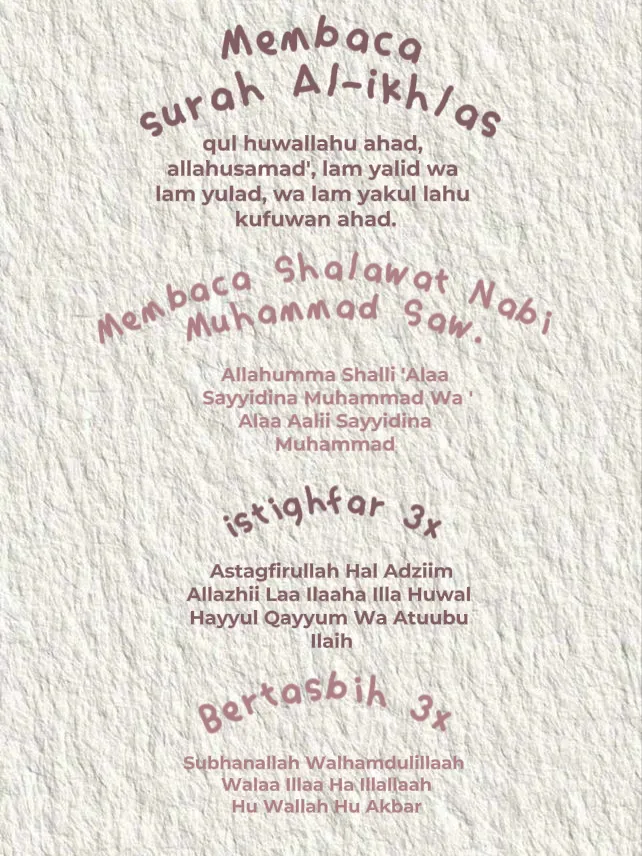 Membaca
surah Al-ikhlas
qul huwallahu ahad,
allahusamad', lam yalid wa
lam yulad, wa lam yakul lahu
kufuwan ahad.
Membaca Shalawat Nabi
Muhammad Saw.
Allahumma Shalli 'Alaa
Sayyidina Muhammad Wa '
Alaa Aalii Sayyidina
Muhammad
istighfar 3x
Astagfirullah Hal Adziim
Allazhii Laa Ilaaha Illa Huwal
Hayyul Qayyum Wa Atuubu
Ilaih
Bertasbih 3x
Subhanallah Walhamdulillaah
Walaa Illaa Ha Illallaah
Hu Wallah Hu Akbar